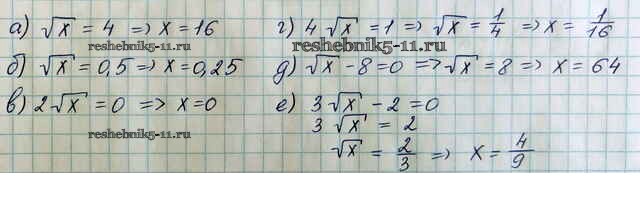 а) √x = 4 => x = 16
reshebnik5-11.ru
б) √x = 0,5 => x = 0,25
в) 2√x = 0 => x = 0
reshebnik5-11.ru
г) 4√x = 1 => √x = 1/4 => x = 1/16
reshebnik5-11.ru
д) √x - 8 = 0 => √x = 8 => x = 64
е) 3√x - 2 = 0
3√x = 2
√x = 2/3 => x = 4/9